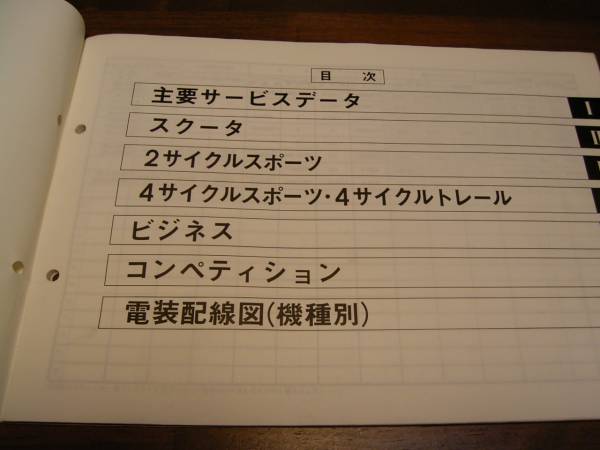 目 次
主要サービスデータ
I
スクータ
II
2サイクルスポーツ
4サイクルスポーツ・4サイクルトレール
ビジネス
コンペティション
電装配線図(機種別)